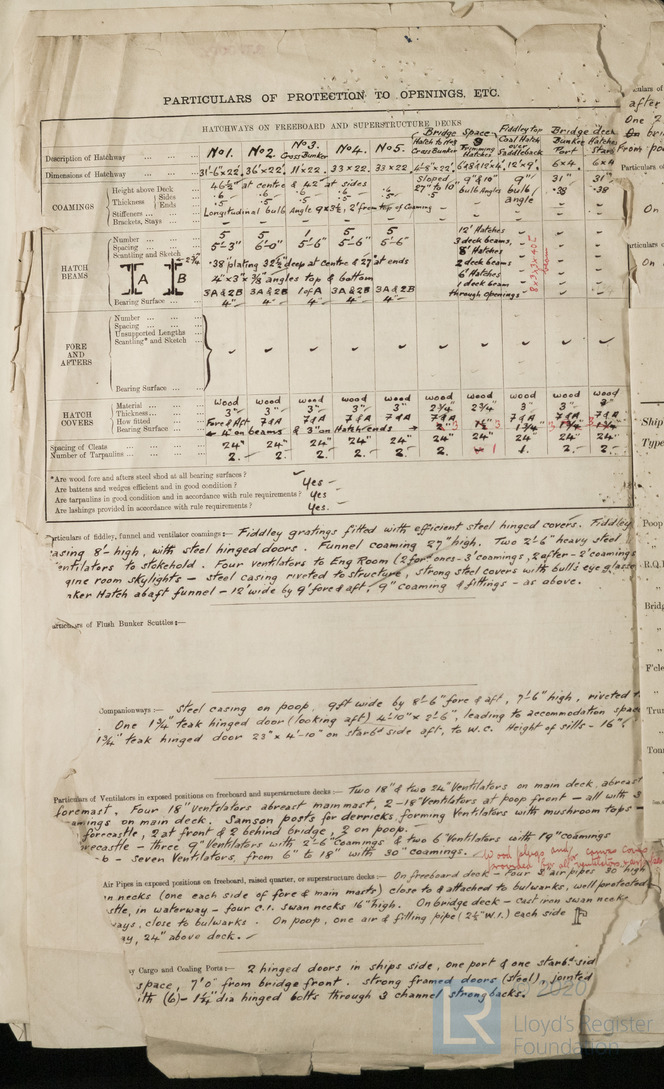 PARTICULARS OF PROTECTION TO OPENINGS, ETC.
HATCHWAYS ON FREEBOARD AND SUPERSTRUCTURE DECKS
Description of Hatchway No 1. No 2. No 3. Cross Bunker No 4. No 5. Bridge Space Hatch to No 3 Cross Bunker 9 Trimming Hatches Fiddley top Coal Hatch over Saddleback Bridge deck Bunker Hatches Port Star
Dimensions of Hatchway 31'-6"x22' 36'x22' 11'x22' 33x22 33x22 12'x9' 6x4 6x4
COAMINGS
Height above Deck 46½" at centre & 42" at sides Sloped 27" to 10" 9" & 10" bulb Angles 9" bulb angle 31" 31"
Thickness Sides .6 .6 .6 .6 .6 .38 .38
Ends .5 .5 .5 .5 .5
Stiffeners Longitudinal bulb Angle 9x3½, 2' from top of Coaming
Brackets, Stays
HATCH BEAMS
Number 5 5 1 5 5 12' Hatches
Spacing 5'-3" 6'-0" 5'-6" 5'-6" 5'-6" 3 deck beams,
Scantling and Sketch 8' Hatches
A B .38 plating 32½" deep at centre & 27" at ends 2 deck beams
4"x3"x⅜" angles top & bottom 6' Hatches
3A & 2B 3A & 2B 1 of A 3A & 2B 3A & 2B 1 deck beam
Bearing Surface 4" 4" 4" 4" 4" through openings
FORE AND AFTERS
Number
Spacing
Unsupported Lengths
Scantling* and Sketch
Bearing Surface
HATCH COVERS
Material wood wood wood wood wood wood wood wood wood wood
Thickness 3" 3" 3" 3" 3" 2¾" 2¾" 3 3" 3"
How fitted Fore & Aft F & A F & A F & A F & A F & A F & A F & A F & A F & A
Bearing Surface on beams & 3" on Hatch ends 2" 3 1½" 3 1¾" 3 1¾" 3 1¾"
Spacing of Cleats 24" 24" 24" 24" 24" 24" 24" 24 24" 24"
Number of Tarpaulins 2. 2. 2. 2. 2. 2. 1 1. 2. 2.
*Are wood fore and afters steel shod at all bearing surfaces?
Are battens and wedges efficient and in good condition? Yes
Are tarpaulins in good condition and in accordance with rule requirements? Yes
Are lashings provided in accordance with rule requirements? Yes.
articulars of fiddley, funnel and ventilator coamings:— Fiddley gratings fitted with efficient steel hinged covers. Fiddley
asing 8'-high, with steel hinged doors. Funnel coaming 27" high. Two 2'-6" heavy steel
entilators to stokehold. Four ventilators to Eng Room (2 for'-ones-3' coamings, 2 after-2' coamings
gine room skylights - steel casing riveted to structure, strong steel covers with bull's eye glasse
nker Hatch abaft funnel - 12' wide by 9' fore & aft, 9" coaming & fittings - as above.
articulars of Flush Bunker Scuttles:—
Companionways:— Steel casing on poop, 9ft wide by 8'-6" fore & aft, 7'-6" high, riveted
One 1¾" teak hinged door (looking aft) 4'-10" x 2'-6", leading to accommodation space
1¾" teak hinged door 23" x 4'-10" on starbd side aft, to W.C. Height of sills - 16"
Particulars of Ventilators in exposed positions on freeboard and superstructure decks:— Two 18" & two 24" Ventilators on main deck, abreast
foremast. Four 18" Ventilators abreast main mast, 2-18" Ventilators at poop front - all with 3
amings on main deck. Samson posts for derricks, forming Ventilators with mushroom tops -
forecastle, 2 at front & 2 behind bridge, 2 on poop.
recastle - three 9" Ventilators with 2'-6" Coamings & two 6" Ventilators with 19" coamings
- seven Ventilators, from 6" to 18" with 30" coamings. Wood plugs and canvas covers
provided for all ventilators
Air Pipes in exposed positions on freeboard, raised quarter, or superstructure decks:— On freeboard deck - four 3" air pipes 30" high
n necks (one each side of fore & main masts) close to & attached to bulwarks, well protected
stle, in waterway - four C.I. swan necks 16" high. On bridge deck - Cast iron swan necks
ways, close to bulwarks. On poop, one air & filling pipe (2½" W.I.) each side
ay, 24" above deck.
Cargo and Coaling Ports:— 2 hinged doors in ships side, one port & one starbd side
space, 7'0" from bridge front. Strong framed doors (steel), jointed
ith (6)- 1¼" dia hinged bolts through 3 channel strongbacks.
2020
LR
Lloyd's Register
Foundation
after
One 2
from po
Particulars
On
Ship
Type
Poop
R.Q.
Bridg
F'cle
Trun
Tonn